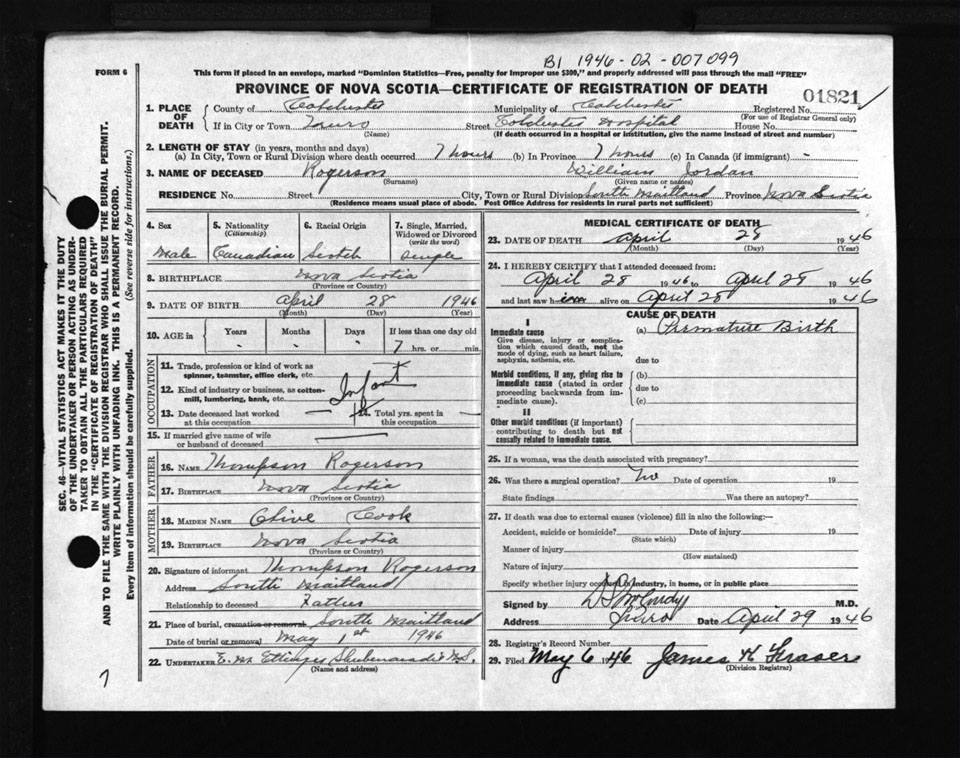 B1 1946-02-007099
FORM 6
This form if placed in an envelope, marked "Dominion Statistics—Free, penalty for improper use $300," and properly addressed will pass through the mail "FREE"
PROVINCE OF NOVA SCOTIA—CERTIFICATE OF REGISTRATION OF DEATH
01821
1. PLACE OF DEATH
County of Colchester Municipality of Colchester Registered No.
(For use of Registrar General only)
If in City or Town Truro Street Colchester Hospital House No.
(Name) (If death occurred in a hospital or institution, give the name instead of street and number)
2. LENGTH OF STAY (in years, months and days)
(a) In City, Town or Rural Division where death occurred 7 hours (b) In Province 7 hours (c) In Canada (if immigrant) -
3. NAME OF DECEASED Rogerson William Jordan
(Surname) (Given name or names)
RESIDENCE No. Street City, Town or Rural Division South Maitland Province Nova Scotia
(Residence means usual place of abode. Post Office Address for residents in rural parts not sufficient)
4. Sex Male
5. Nationality (Citizenship) Canadian
6. Racial Origin Scotch
7. Single, Married, Widowed or Divorced (write the word) Single
8. BIRTHPLACE Nova Scotia
(Province or Country)
9. DATE OF BIRTH April 28 1946
(Month) (Day) (Year)
10. AGE in Years Months Days If less than one day old
- - - 7 hrs. or min.
OCCUPATION
11. Trade, profession or kind of work as spinner, teamster, office clerk, etc.
12. Kind of industry or business, as cotton-mill, lumbering, bank, etc.
Infant
13. Date deceased last worked at this occupation — 14. Total yrs. spent in this occupation —
15. If married give name of wife or husband of deceased —
FATHER
16. NAME Thompson Rogerson
17. BIRTHPLACE Nova Scotia
(Province or Country)
MOTHER
18. MAIDEN NAME Olive Cook
19. BIRTHPLACE Nova Scotia
(Province or Country)
20. Signature of informant Thompson Rogerson
Address South Maitland
Relationship to deceased Father
21. Place of burial, cremation or removal South Maitland
Date of burial or removal May 1st 1946
22. UNDERTAKER E. M. Ettinger Shubenacadie N.S.
(Name and address)
7
MEDICAL CERTIFICATE OF DEATH
23. DATE OF DEATH April 28 1946
(Month) (Day)
24. I HEREBY CERTIFY that I attended deceased from:
April 28 1946 to April 28 1946
and last saw h im alive on April 28 1946
CAUSE OF DEATH
I
Immediate cause (a) Premature Birth
Give disease, injury or complication which caused death, not the mode of dying, such as heart failure, asphyxia, asthenia, etc.
due to
Morbid conditions, if any, giving rise to immediate cause (stated in order proceeding backwards from immediate cause).
(b)
due to
(c)
II
Other morbid conditions (if important) contributing to death but not causally related to immediate cause.
25. If a woman, was the death associated with pregnancy?
26. Was there a surgical operation? No Date of operation 19
State findings Was there an autopsy?
27. If death was due to external causes (violence) fill in also the following:—
Accident, suicide or homicide? Date of injury 19
(State which)
Manner of injury
(How sustained)
Nature of injury
Specify whether injury occurred in industry, in home, or in public place
Signed by McCurdy M.D.
Address Truro Date April 29 1946
28. Registrar's Record Number
29. Filed May 6 1946 James H Fraser
(Division Registrar)
SEC. 46—VITAL STATISTICS ACT MAKES IT THE DUTY
OF THE UNDERTAKER OR PERSON ACTING AS UNDER-
TAKER TO OBTAIN ALL THE PARTICULARS REQUIRED
IN THE "CERTIFICATE OF REGISTRATION OF DEATH"
AND TO FILE THE SAME WITH THE DIVISION REGISTRAR WHO SHALL ISSUE THE BURIAL PERMIT.
WRITE PLAINLY WITH UNFADING INK. THIS IS A PERMANENT RECORD.
Every item of information should be carefully supplied. (See reverse side for instructions.)